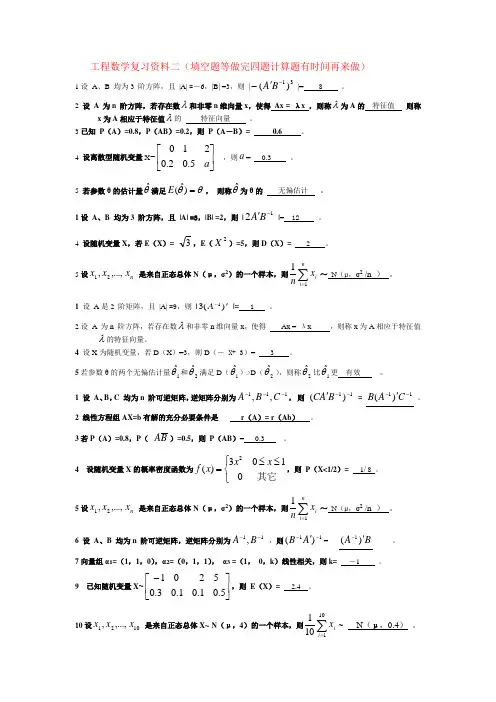 工程数学复习资料二（填空题等做完四题计算题有时间再来做）
1 设 A、B 均为 3 阶方阵，且 |A| =－6，|B| =3，则 |－(A′B⁻¹)³|= 8 。
2 设 A 为 n 阶方阵，若存在数λ和非零 n 维向量 x，使得 Ax = λx ，则称λ为 A 的 特征值 则称
x 为 A 相应于特征值λ的 特征向量 。
3 已知 P（A）=0.8，P（AB）=0.2，则 P（A－B）= 0.6 。
4 设离散型随机变量 X~[0 1 2
0.2 0.5 a] ，则 a = 0.3 。
5 若参数θ的估计量θ̂满足E(θ̂)=θ， 则称θ̂为θ的 无偏估计 。
1 设 A、B 均为 3 阶方阵，且 |A|=3，|B| =2，则 |2A′B⁻¹|= 12 。
4 设随机变量 X，若 E（X）= √3，E（X²）=5，则 D（X）= 2 。
5 设 x₁, x₂,..., xₙ 是来自正态总体 N（μ，σ²）的一个样本，则 1/n ∑ᵢ₌₁ⁿ xᵢ ～ N（μ，σ² /n ） 。
1 设 A 是 2 阶矩阵，且 |A| =9，则 |3(A⁻¹)′|= 1 。
2 设 A 为 n 阶方阵，若存在数λ和非零 n 维向量 x，使得 Ax = λx ，则称 x 为 A 相应于特征值
λ的特征向量。
4 设 X 为随机变量，若 D（X）=3，则 D（－ X+ 3）= 3 。
5 若参数θ的两个无偏估计量θ̂₁和θ̂₂满足 D（θ̂₁）>D（θ̂₂），则称θ̂₂比θ̂₁更 有效 。
1 设 A、B，C 均为 n 阶可逆矩阵，逆矩阵分别为A⁻¹, B⁻¹, C⁻¹，则 (CA′B⁻¹)⁻¹ = B(A⁻¹)′C⁻¹ 。
2 线性方程组 AX=b 有解的充分必要条件是 r（A）= r（Ab） 。
3 若 P（A）=0.8，P（ AB̅）=0.5，则 P（AB）= 0.3 。
4 设随机变量 X 的概率密度函数为 f(x)={3x² 0≤x≤1
0 其它，则 P（X<1/2）= 1/8 。
5 设 x₁, x₂,..., xₙ 是来自正态总体 N（μ，σ²）的一个样本，则 1/n ∑ᵢ₌₁ⁿ xᵢ ～ N（μ，σ² /n ） 。
6 设 A、B 均为 n 阶可逆矩阵，逆矩阵分别为A⁻¹, B⁻¹ ，则(B⁻¹A′)⁻¹= (A⁻¹)′B 。
7 向量组 α1=（1，1，0），α2=（0，1，1）， α3 =（1， 0，k）线性相关，则 k= －1 。
9 已知随机变量 X~[－1 0 2 5
0.3 0.1 0.1 0.5]，则 E（X）= 2.4 。
10 设 x₁, x₂,..., x₁₀ 是来自正态总体 X~ N（μ，4）的一个样本，则 1/10 ∑ᵢ₌₁¹⁰ xᵢ ~ N（μ，0.4） 。